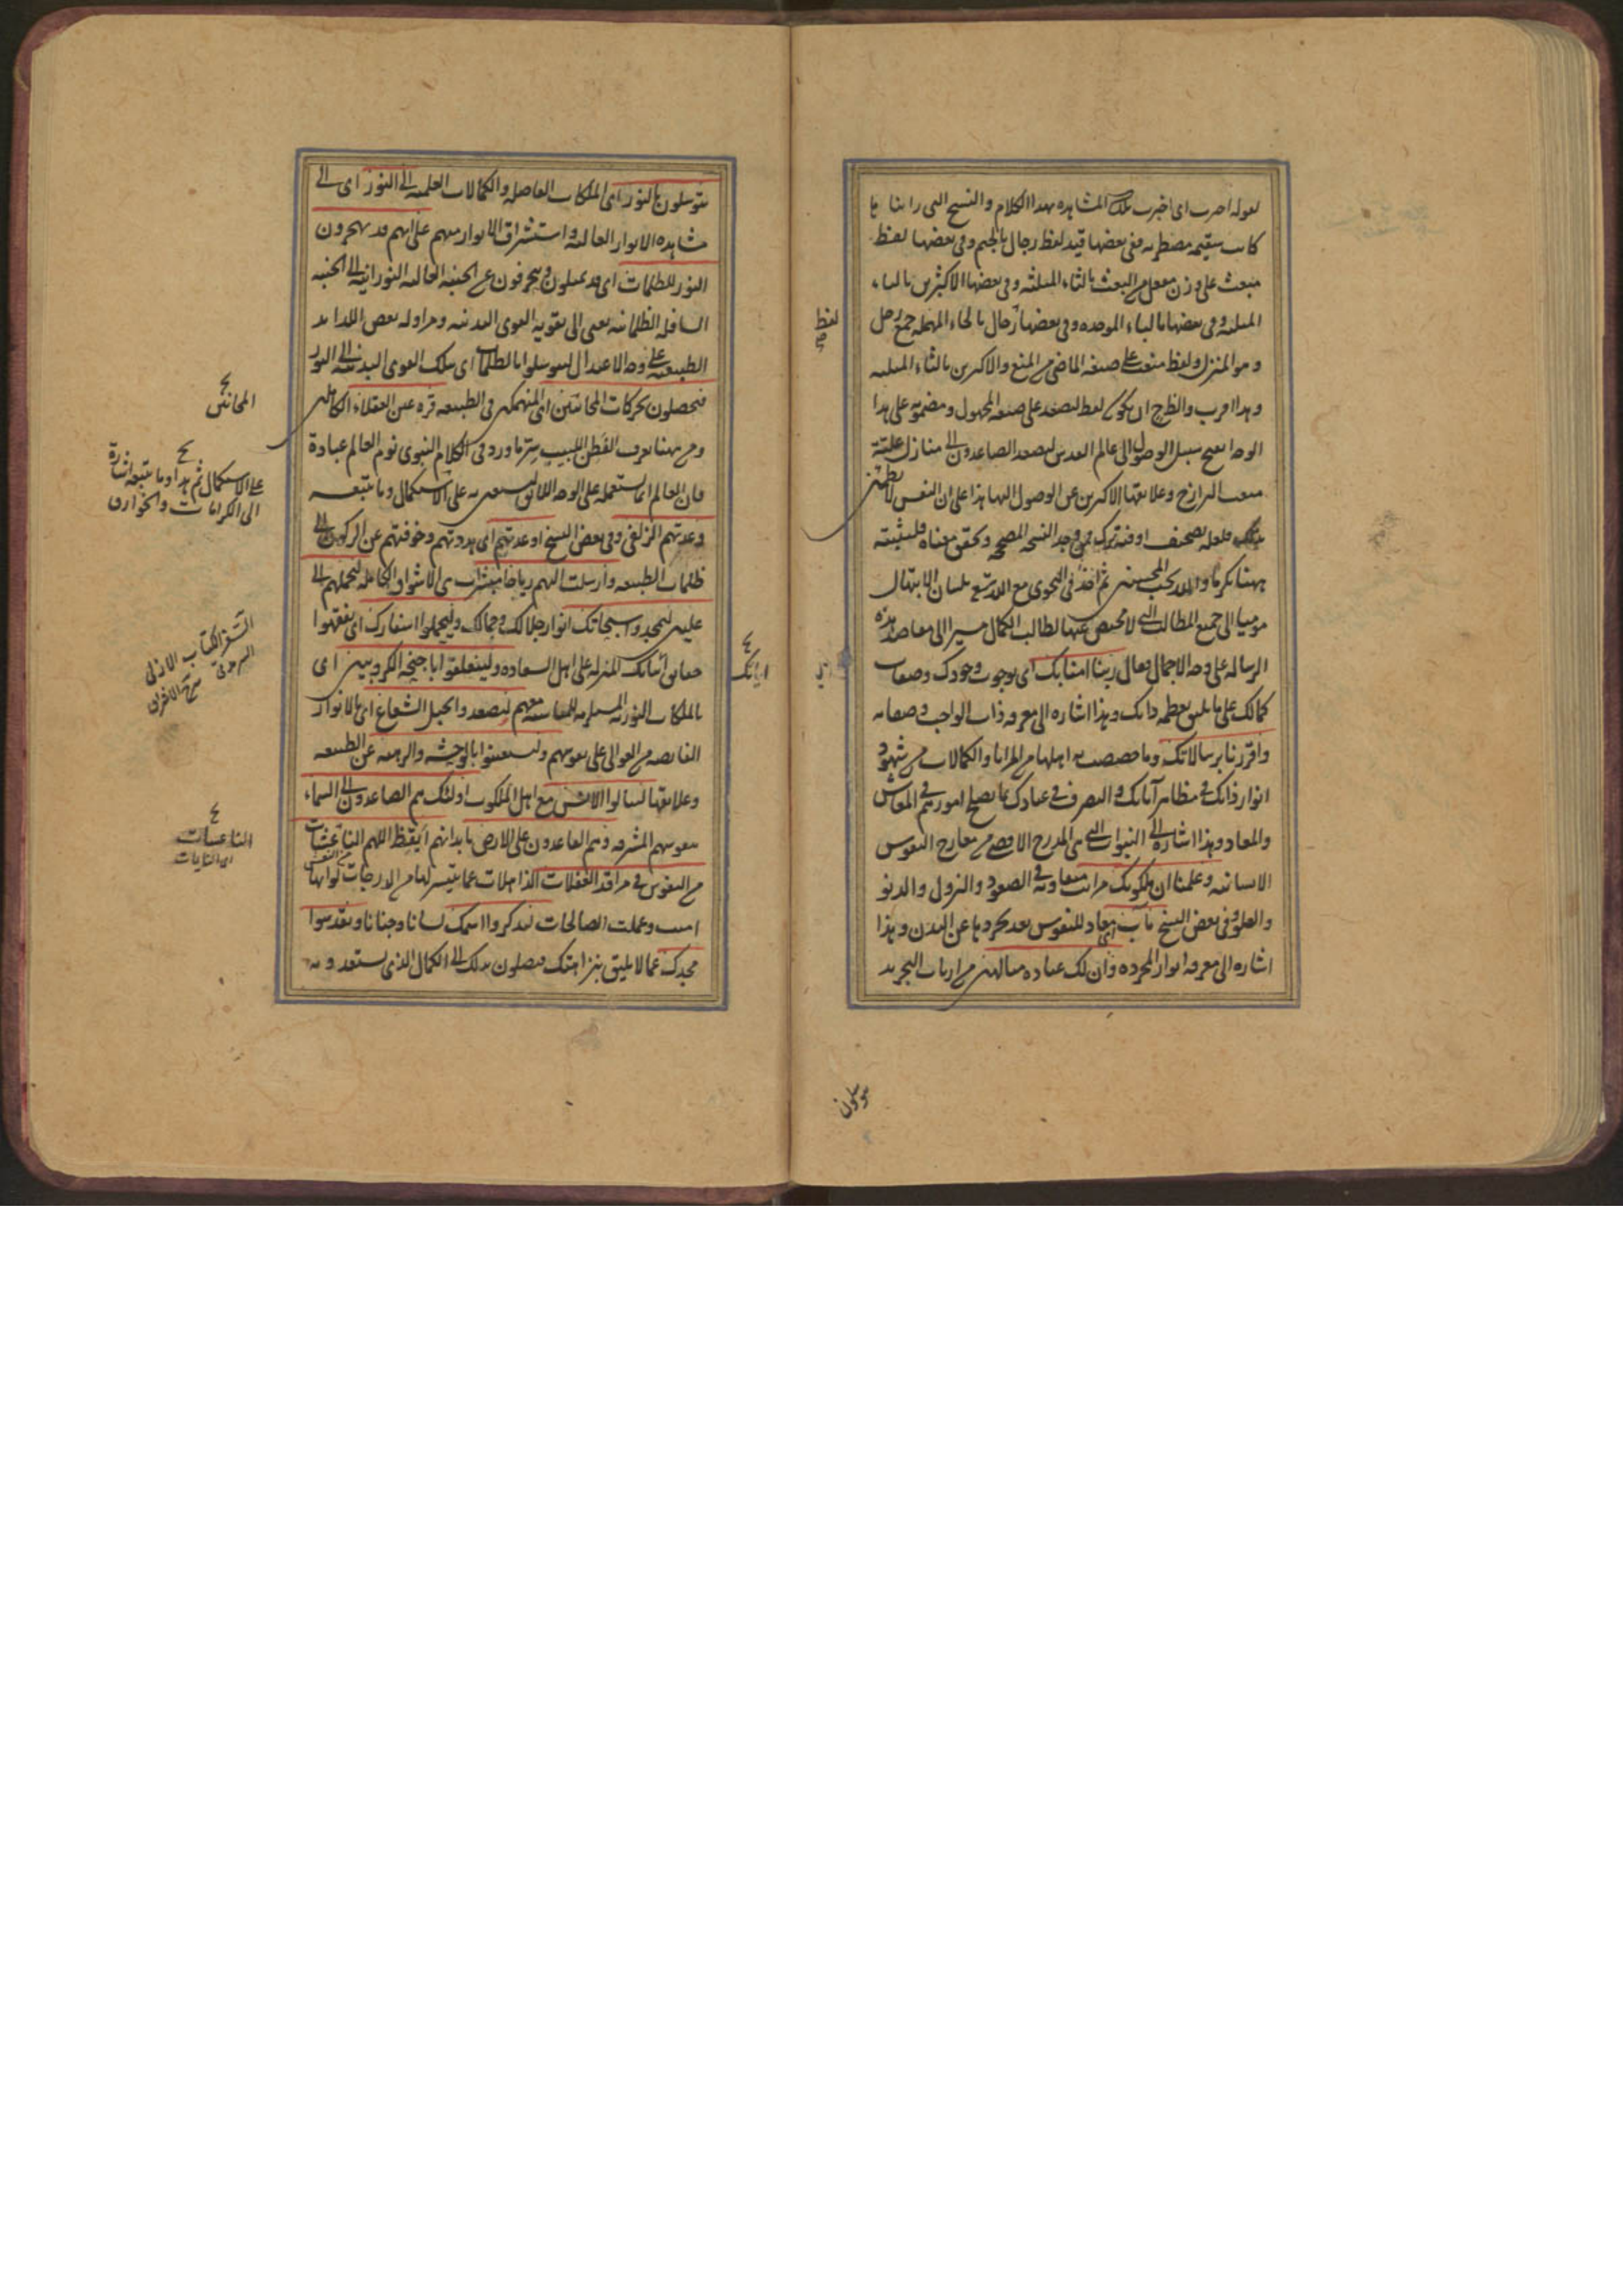 لقوله اخبرت اى اخبرت تلك المشاهده بهذا الكلام والنسخ التى رايناها
كانت سقيمه مضطربه ففى بعضها قيد لفظ رجال بالجيم وفى بعضها لفظ
منبعث على وزن منفعل من البعث بالثاء المثلثه وفى بعضها الاكثرين بالباء
المثلثه وفى بعضها بالباء الموحده وفى بعضها رحال بالحاء المهمله جمع رحل
وهو المنزل ولفظ منعت على صيغة الماضى من المنع والاكثرين بالثاء المثلثه
وهذا اقرب والظ ح ان يكون لفظ لتصعد على صيغه المجهول ومضمونه على هذا
الوجه سبيل الوصول الى عالم القدس ليصعد الصاعدون الى منازل عليته
منعت البرازخ وعلائقها الاكثرين عن الوصول اليها هذا على ان النفس لا تطمئن
بذلك فلعله تصحيف او فيه ترك فمن وجد النسخه الصحيحه وتحقق معناه فليثبته
ههنا تكرما والله يحب المحسنين ثم اخذ فى النجوى مع الله تع بلسان الابتهال
موميا الى جميع المطالب التى لا محيص عنها لطالب الكمال مشيرا الى مقاصد هذه
الرساله على وجه الاجمال فقال ربنا امنا بك اى بوجوب وجودك وصفات
كمالك على ما يليق بعظمه ذاتك وهذا اشاره الى معرفه ذات الواجب وصفاته
واقررنا برسالاتك وما خصصت به اهلها من المزايا والكمالات من شهود
انوار ذاتك فى مظاهر آياتك والتصرف فى عبادك بما يصلح امورهم فى المعاش
والمعاد وهذا اشاره الى النبوات التى هى المدرج الاقصى من معارج النفوس
الانسانيه وعلمنا ان لملكوتك مراتب متفاوته فى الصعود والنزول والدنو
والعلو وفى بعض النسخ مآب اى معاد للنفوس بعد تجردها عن البدن وهذا
اشاره الى معرفه انوار المجرده وان لك عبادا متالهين من ارباب التجريد
لفظ
صح
يتوسلون
يتوسلون بالنور اى الملكات الفاضله والكمالات العلميه الى النور اى الى
مشاهده الانوار العاليه واستشراق الانوار منهم على انهم قد يهجرون
النور للظلمات اى قد يميلون وينحرفون عن الجنبه العاليه النورانيه الى الجنبه
السافله الظلمانيه يعنى الى تقويه القوى البدنيه ومزاوله بعض اللذايذ
الطبيعيه على وجه الاعتدال ليتوسلوا بالظلمات اى بتلك القوى البدنيه الى النور
فيحصلون بحركات المجانين اى المنهمكين فى الطبيعه قره عين العقلاء الكاملين
ومن ههنا يعرف الفطن اللبيب سر ما ورد فى الكلام النبوى نوم العالم عبادة
فان العالم انما يستعمله على الوجه اللائق ليستعين به على الاستكمال وما يتبعه
وعدتهم الزلفى وفى بعض النسخ اوعدتهم اى هددتهم وخوفتهم عن الركون الى
ظلمات الطبيعه وارسلت اليهم رياحا مبشرات هى الاشواق الكامله لتحملهم الى
عليين ليمجدوا سبحاتك انوار جلالك وجمالك وليحملوا اسفارك اى يفقهوا
حقائق آياتك المنزله على اهل السعاده وليتعلقوا باجنحه الكروبيين اى
بالملكات النوريه المستلزمه للمناسبه معهم ليصعدوا بحبل الشعاع اى بالانوار
الفايضه من العوالى على نفوسهم وليستعينوا بالوحشه والرهبه عن الطبيعه
وعلائقها لينالوا الانس مع اهل الملكوت اولئك هم الصاعدون الى السماء
بنفوسهم المشرقه وهم القاعدون على الارض بابدانهم ايقظ اللهم الناعسات
من النفوس فى مراقد الغفلات الذاهلات عما يتيسر لها من الدرجات لو انها
امنت وعملت الصالحات ليذكروا اسمك لسانا وجنانا ويقدسوا
مجدك عما لا يليق بنزاهتك فيصلون بذلك الى الكمال الذى يستعدونه
المجانين
على الاستكمال ثم هذا وما يتبعه اشارة
الى الكرامات والخوارق
السفر الكتاب
اياتك
الناعسات